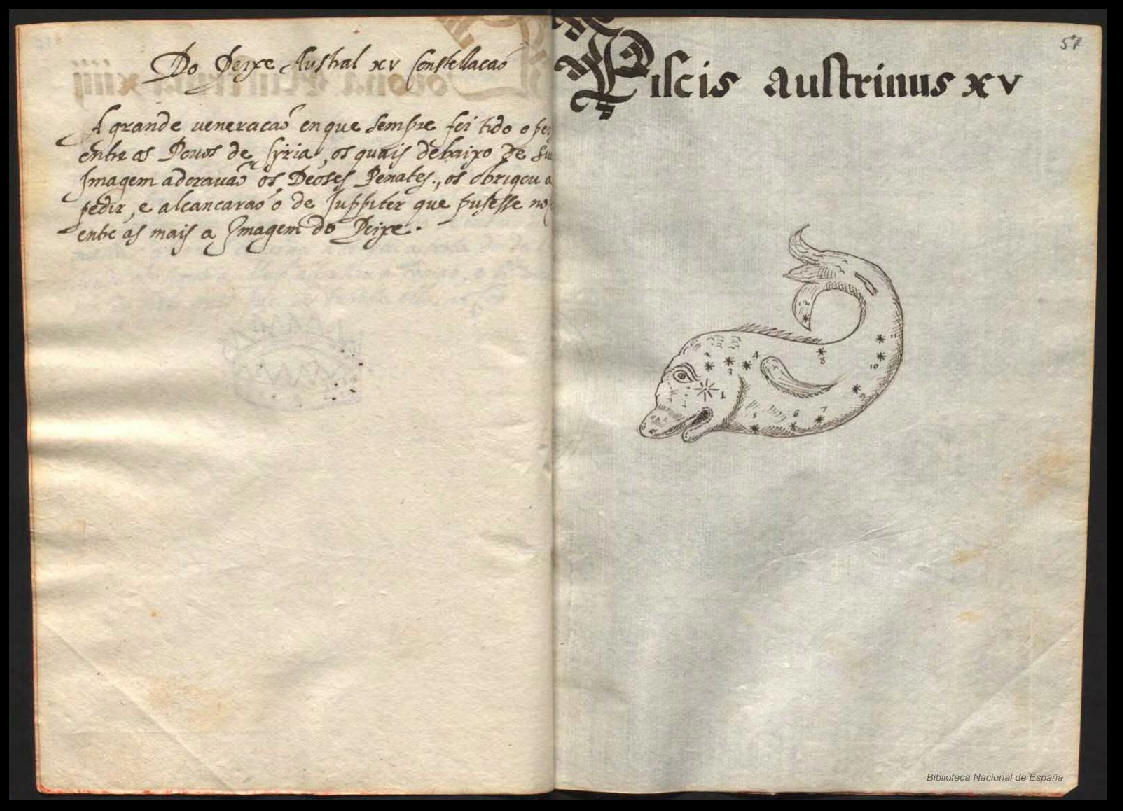 Do Peixe Austral xv Constellacaõ
A grande veneracaõ enque sempre foi tido o pei
entre os Pouos de Syria, os quais debaixo de su
Imagem adorauaõ os Deoses Penates, os obrigou a
pedir, e alcancaraõ o de Juppiter que pusesse no
entre as mais a Imagem do Peixe.
Piscis austrinus xv
57
1
3
4
5
6
7
8
9
Biblioteca Nacional de España